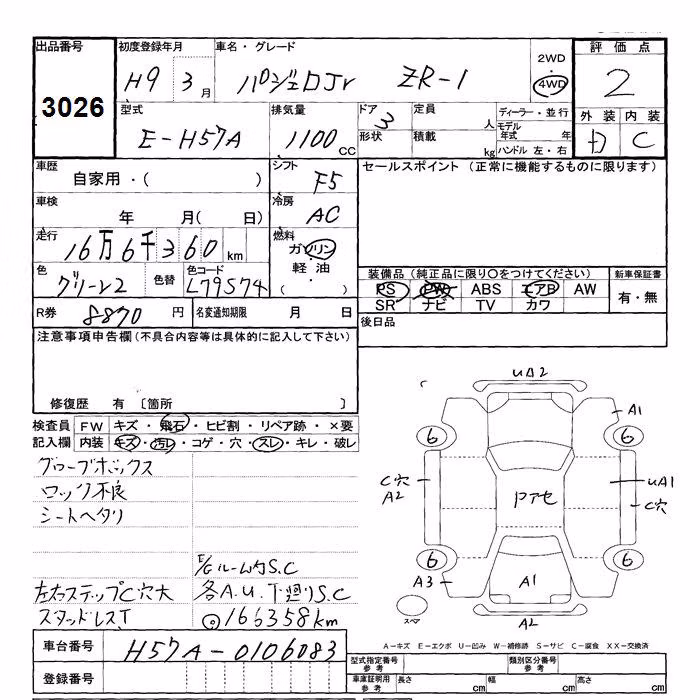 出品番号 初度登録年月 車名・グレード 評価点
3026 H9 3月 パジェロJr ZR-1 2WD 4WD 2
型式 排気量 ドア 定員 人 ディーラー・並行 外装 内装
E-H57A 1100CC 3 形状 積載 kg モデル年式 年 ハンドル 左・右 C
車歴 自家用・( ) シフト F5 セールスポイント (正常に機能するものに限ります)
車検 年 月( 日) 冷房 AC
走行 16万6千360km 燃料 ガソリン・軽油・( )
色 グリーン2 色替 色コード L79574 装備品 (純正品に限り○をつけてください) 新車保証書
PS PW ABS エアB AW 有・無
SR ナビ TV カワ
R券 8870円 名変通知期限 月 日 後日品
注意事項申告欄 (不具合内容等は具体的に記入して下さい)
修復歴 有 〔箇所 〕
検査員 FW キズ・飛石・ヒビ割・リペア跡・×要
記入欄 内装 キズ・汚レ・コゲ・穴・スレ・キレ・破レ
グローブボックス
ロック不良
シートヘタリ
E/Gルーム内S.C
左右ステップC穴大 各A.U.下廻りS.C
スタッドレスT 166358km
UA2
A1
6 6
C穴 A2 Pアセ UA1 C穴
6 6
A3 A1
スペア A2
A-キズ E-エクボ U-凹み W-補修跡 S-サビ C-腐食 XX-交換済
車台番号 H57A-0106083
型式指定番号 参考 類別区分番号 参考
登録番号 車庫証明用 参考 長さ cm 幅 cm 高さ cm